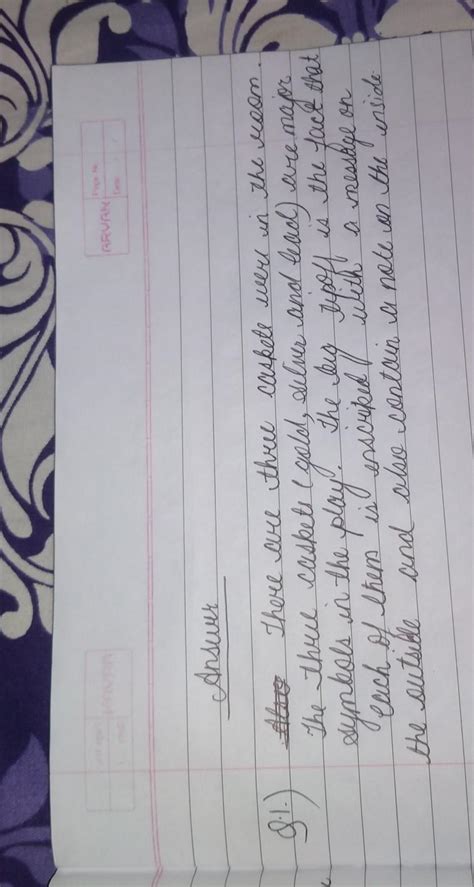 AARVAN
Page No.
Date
Answer
Q.1.) There are three caskets were in the room.
The three caskets (gold, silver and lead) are major
symbols in the play. The big tipoff is the fact that
each of them is enscriped with a message on
the outside and also contain a note on the inside